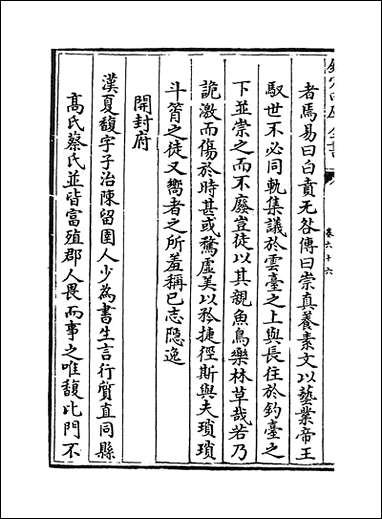 欽定四庫全書
卷六十六
者焉易曰白賁无咎傳曰崇真養素文以藝業帝王
馭世不必同軌集議於雲臺之上與長往於釣臺之
下並崇之而不廢豈徒以其親魚鳥樂林草哉若乃
詭激而傷於時甚或騖虛美以矜捷徑斯與夫瑣瑣
斗筲之徒又嚮者之所羞稱已志隐逸
開封府
漢夏馥字子治陳留圉人少為書生言行質直同縣
髙氏蔡氏並皆富殖郡人畏而事之唯馥比門不